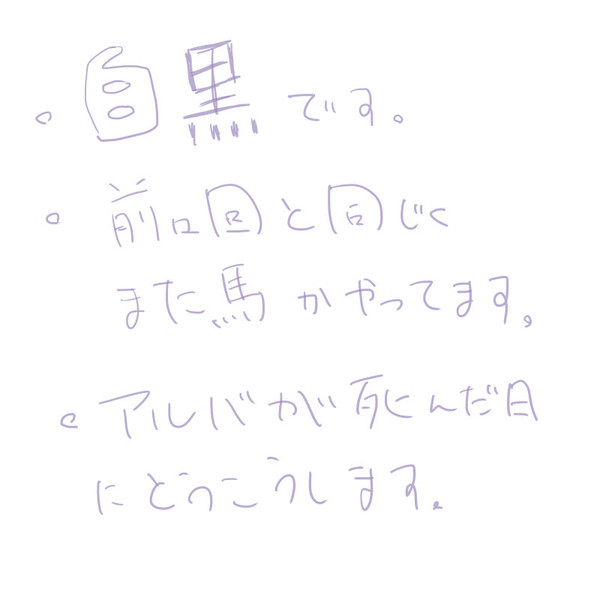 。白黒です。
。前回と同じく
また馬がやってます。
。アルバが死んだ目
にどうこうします。